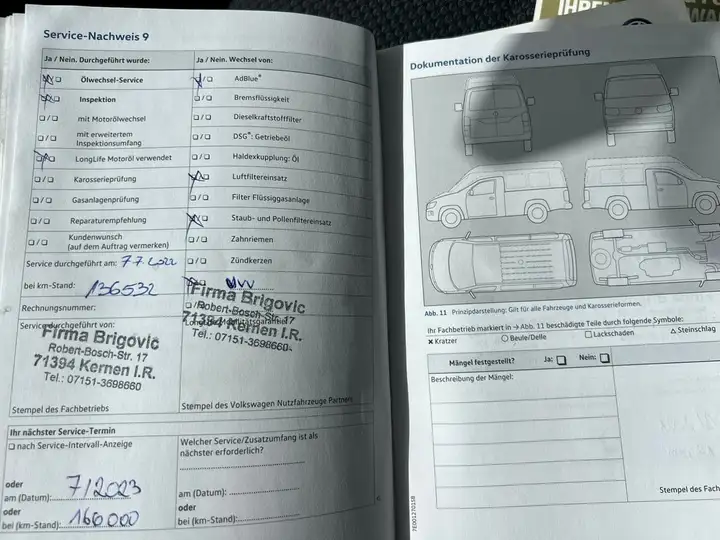 IHREN
Service-Nachweis 9
Ja / Nein. Durchgeführt wurde:
Ölwechsel-Service
Inspektion
mit Motorölwechsel
mit erweitertem
Inspektionsumfang
LongLife Motoröl verwendet
Karosserieprüfung
Gasanlagenprüfung
Reparaturempfehlung
Kundenwunsch
(auf dem Auftrag vermerken)
Service durchgeführt am:
bei km-Stand: 136532
Rechnungsnummer:
Service durchgeführt von:
Firma Brigovic
Robert-Bosch-Str. 17
71394 Kernen I.R.
Tel.: 07151-3698660
Stempel des Fachbetriebs
Ja / Nein. Wechsel von:
AdBlue®
Bremsflüssigkeit
Dieselkraftstofffilter
DSG®: Getriebeöl
Haldexkupplung: Öl
Luftfiltereinsatz
Filter Flüssiggasanlage
Staub- und Pollenfiltereinsatz
Zahnriemen
Zündkerzen
Firma Brigovic
Robert-Bosch-Str. 17
71394 Kernen I.R.
Tel.: 07151-3698660
Stempel des Volkswagen Nutzfahrzeuge Partners
Ihr nächster Service-Termin
nach Service-Intervall-Anzeige
oder
am (Datum): 7/2023
oder
bei (km-Stand): 160000
Welcher Service/Zusatzumfang ist als
nächster erforderlich?
am (Datum):
oder
bei (km-Stand):
Dokumentation der Karosserieprüfung
Abb. 11 Prinzipdarstellung: Gilt für alle Fahrzeuge und Karosserieformen.
Ihr Fachbetrieb markiert in → Abb. 11 beschädigte Teile durch folgende Symbole:
Kratzer
Beule/Delle
Lackschaden
Steinschlag
Mängel festgestellt? Ja: Nein:
Beschreibung der Mängel:
Stempel des Fach